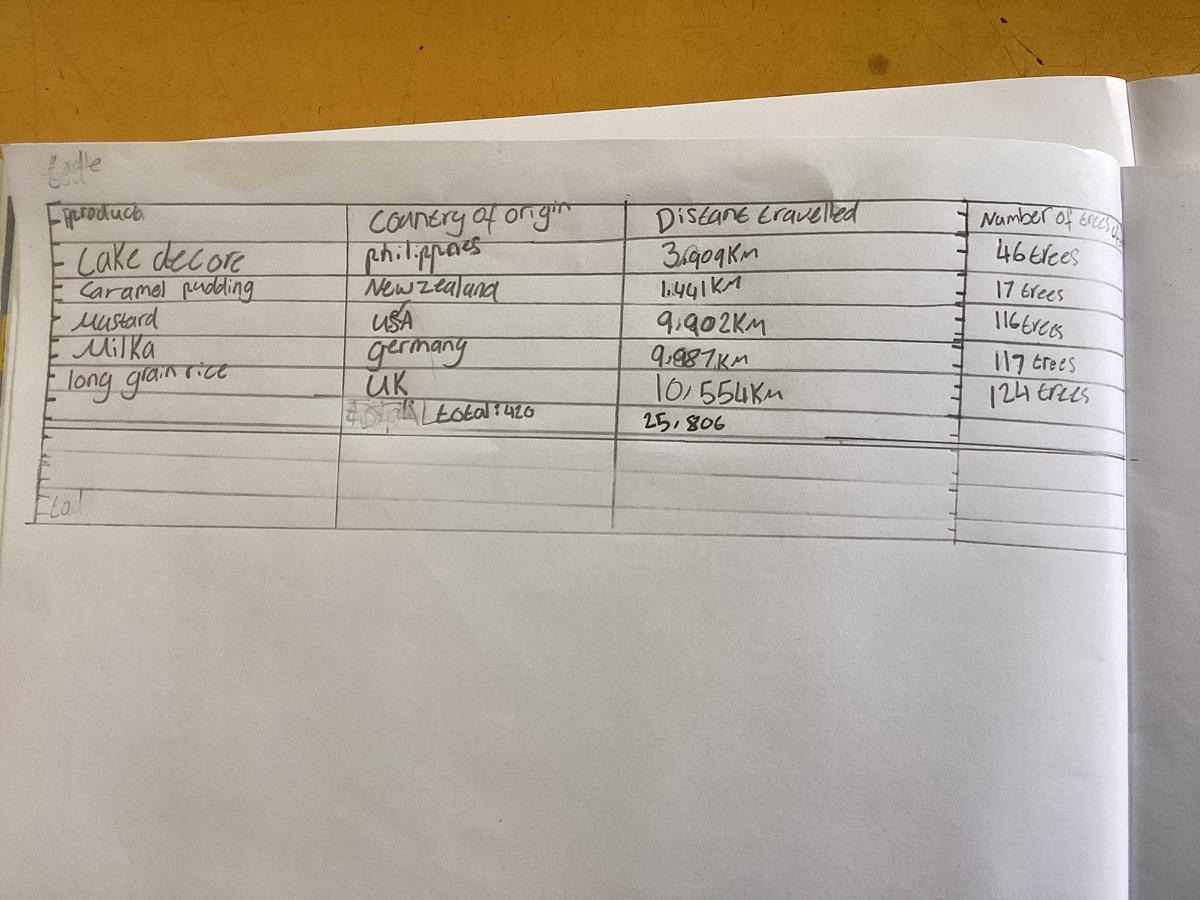 product Country of origin Distant travelled Number of trees
Cake decore philippnes 3,909KM 46 trees
Caramel pudding Newzealand 1,441KM 17 trees
Mustard USA 9,902KM 116 trees
Milka germany 9,987KM 117 trees
long grain rice UK 10,554KM 124 trees
total:420 25,806